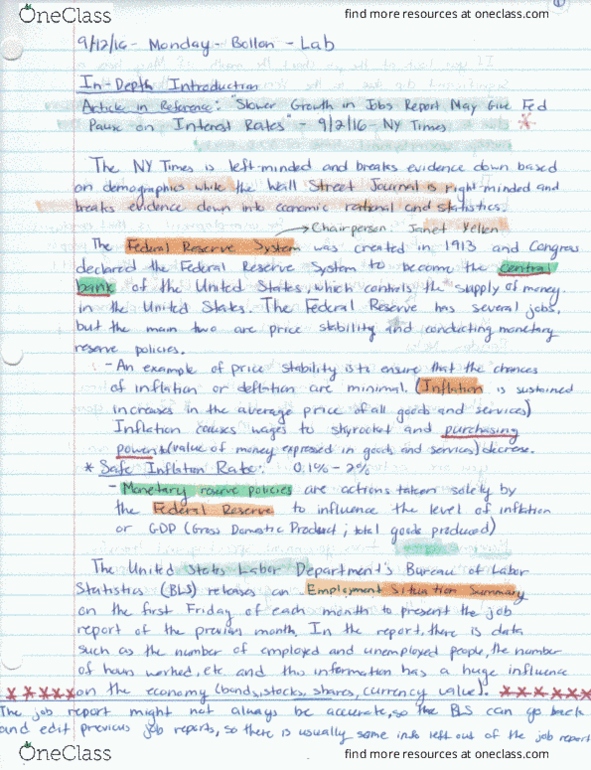 OneClass
find more resources at oneclass.com
1
9/12/16 - Monday - Bollon - Lab
In-Depth Introduction
Article in Reference: "Slower Growth in Jobs Report May Give Fed
Pause on Interest Rates" - 9/2/16 - NY Times *
The NY Times is left-minded and breaks evidence down based
on demographics while the Wall Street Journal is right-minded and
breaks evidence down into economic rational and statistics.
→ Chairperson: Janet Yellen
The Federal Reserve System was created in 1913 and Congress
declared the Federal Reserve System to become the central
bank of the United States, which controls the supply of money
in the United States. The Federal Reserve has several jobs,
but the main two are price stability and conducting monetary
reserve policies.
- An example of price stability is to ensure that the chances
of inflation or deflation are minimal. (Inflation is sustained
increases in the average price of all goods and services)
Inflation causes wages to skyrocket and purchasing
power to (value of money expressed in goods and services) decrease.
* Safe Inflation Rate: 0.1% - 2%
- Monetary reserve policies are actions taken solely by
the Federal Reserve to influence the level of inflation
or GDP (Gross Domestic Product; total goods produced)
The United States Labor Department's Bureau of Labor
Statistics (BLS) releases an Employment Situation Summary
on the first Friday of each month to present the job
report of the previous month. In the report, there is data
such as the number of employed and unemployed people, the number
of hours worked, etc. and this information has a huge influence
* * * * * on the economy (bonds, stocks, shares, currency value). * * * * * *
The job report might not always be accurate, so the BLS can go back
and edit previous job reports, so there is usually some info left out of the job report
OneClass
find more resources at oneclass.com